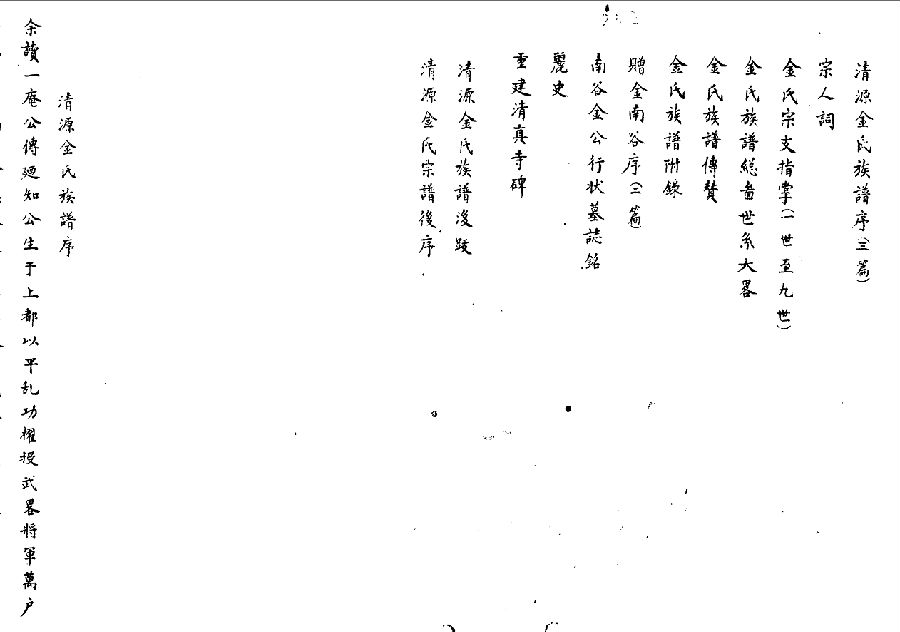 清源金氏族譜序(三篇)
宗人詞
金氏宗支指掌(一世至九世)
金氏族譜總畵世系大畧
金氏族譜傳贊
金氏族譜附錄
贈金南谷序(二篇)
南谷金公行狀墓誌銘
麗史
重建清真寺碑
清源金氏族譜後跋
清源金氏宗譜後序
清源金氏族譜序
余讀一庵公傳廼知公生于上都以平乱功擢授武畧將軍萬户